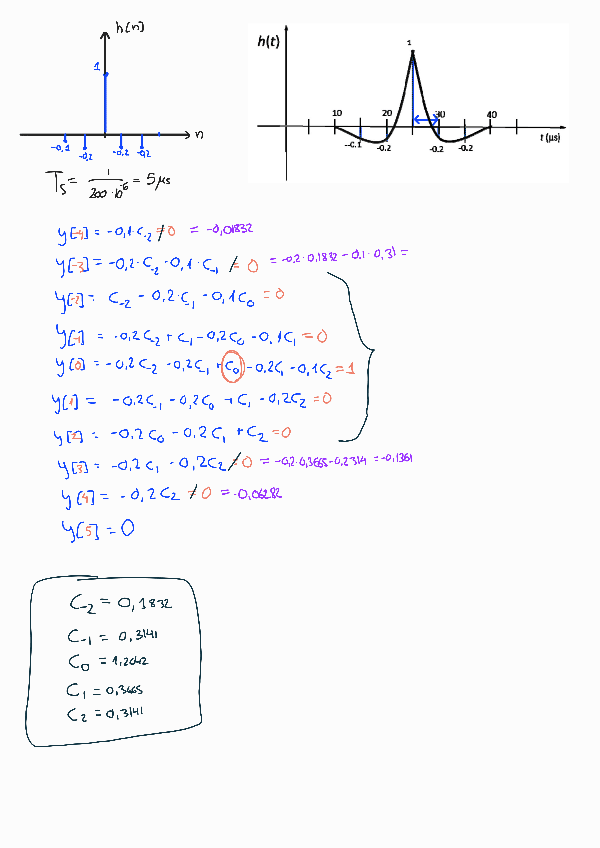 h[n]
1
n
-0,1
-0,2
-0,2
-0,2
h(t)
1
10 20 30 40
-0.1
-0.2
-0.2
-0.2
t (μs)
Ts = 1/200·10⁻⁶ = 5μs
y[-4] = -0,1·C₋₂ ≠ 0 = -0,01832
y[-3] = -0,2·C₋₂ -0,1·C₋₁ ≠ 0 = -0.2·0,1832 - 0.1·0,31 =
y[-2] = C₋₂ - 0,2·C₋₁ - 0,1C₀ = 0
y[-1] = -0,2C₋₂ + C₋₁ - 0,2C₀ - 0,1C₁ = 0
y[0] = -0,2C₋₂ -0,2C₋₁ + C₀ - 0,2C₁ - 0,1C₂ = 1
y[1] = -0,2C₋₁ - 0,2C₀ + C₁ - 0,2C₂ = 0
y[2] = -0,2C₀ - 0,2C₁ + C₂ = 0
y[3] = -0,2C₁ - 0,2C₂ ≠ 0 = -0,2·0,3665 - 0,2314 = -0,1361
y[4] = -0,2C₂ ≠ 0 = -0,06282
y[5] = 0
C₋₂ = 0,1832
C₋₁ = 0,3141
C₀ = 1,2042
C₁ = 0,3665
C₂ = 0,3141